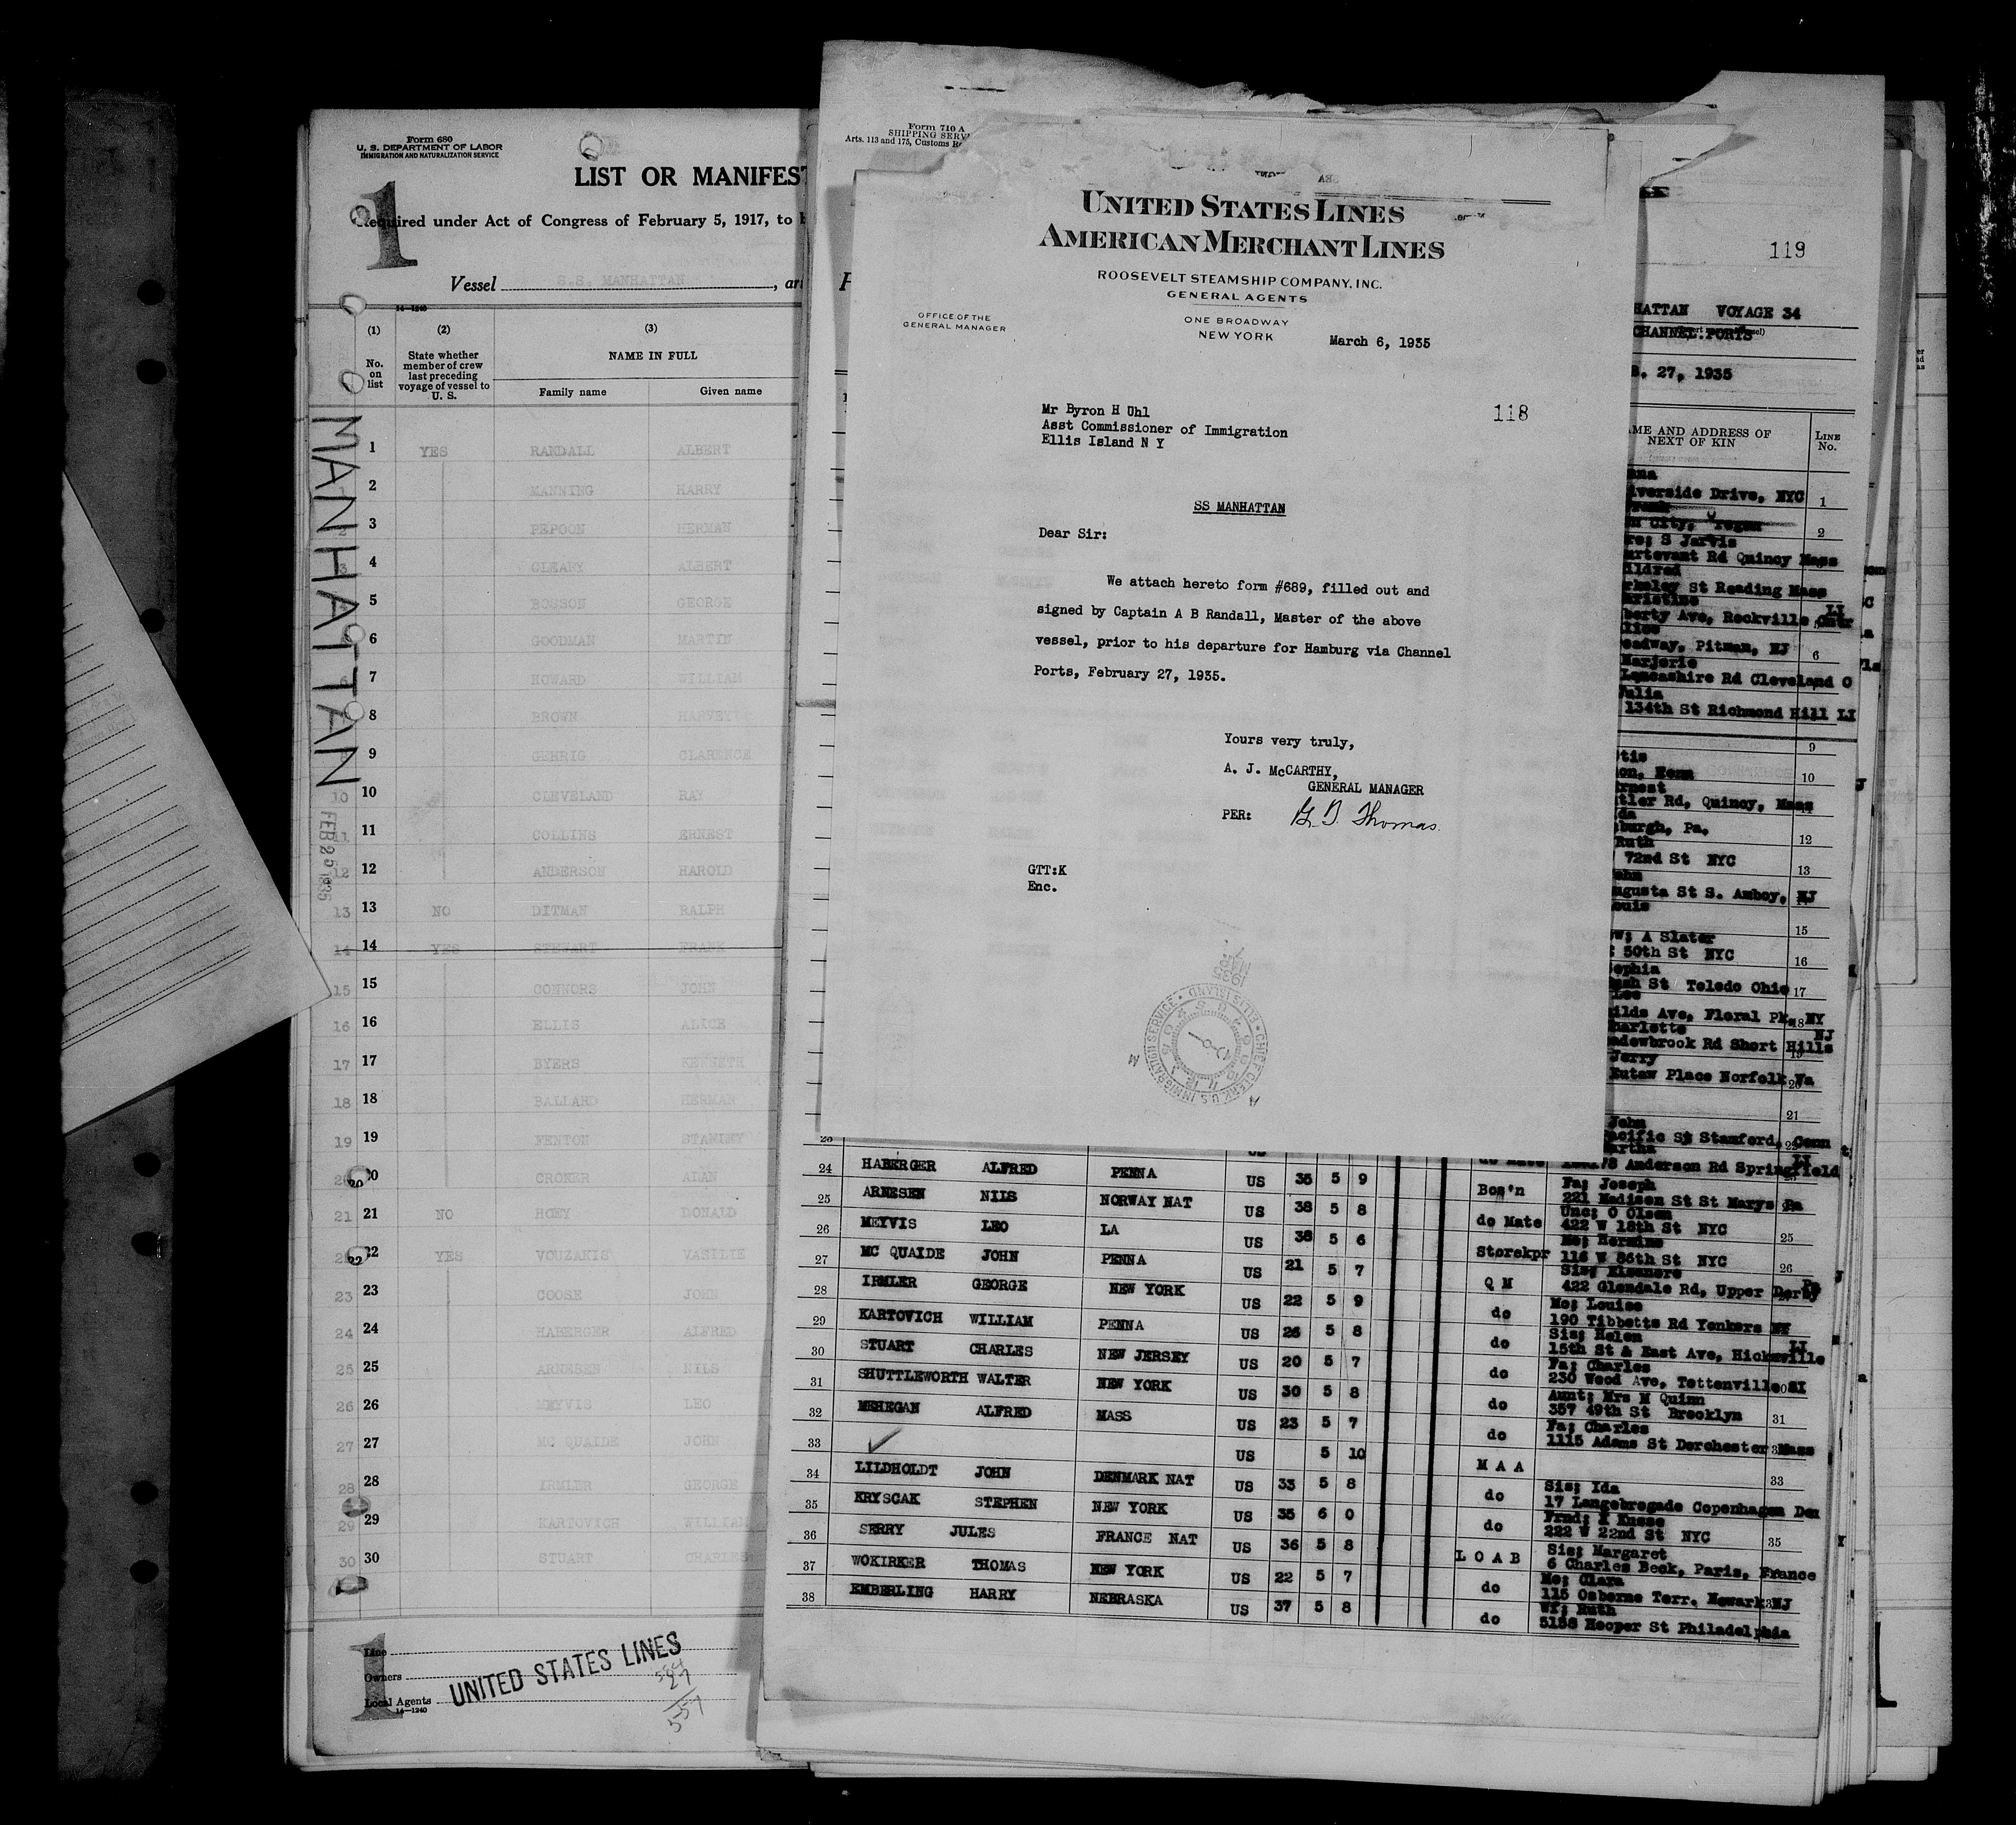 Form 680
U. S. DEPARTMENT OF LABOR
IMMIGRATION AND NATURALIZATION SERVICE
1
LIST OR MANIFEST
Required under Act of Congress of February 5, 1917, to
Vessel S.S. MANHATTAN
14—1240
(1) (2) (3)
No. on list
State whether member of crew last preceding voyage of vessel to U. S.
NAME IN FULL
Family name Given name
MANHATTAN
FEB 25 1935
1 YES RANDALL ALBERT
2 MANNING HARRY
3 PEPOON HERMAN
4 CLEARY ALBERT
5 BOSSON GEORGE
6 GOODMAN MARTIN
7 HOWARD WILLIAM
8 BROWN HARVEY
9 GEHRIG CLARENCE
10 CLEVELAND RAY
11 COLLINS ERNEST
12 ANDERSON HAROLD
13 NO DITMAN RALPH
14 YES STEWART FRANK
15 CONNORS JOHN
16 ELLIS ALICE
17 BYERS KENNETH
18 BALLARD HERMAN
19 FENTON STANLEY
20 CRONER ALAN
21 NO HOEY DONALD
22 YES VOUZAKIS VASILIE
23 COOSE JOHN
24 HABERGER ALFRED
25 ARNESEN NILS
26 MEYVIS LEO
27 MC QUAIDE JOHN
28 IRMLER GEORGE
29 KARTOVICH WILLIAM
30 STUART CHARLES
Line
Owners
Local Agents
UNITED STATES LINES
14—1240
1
27
557
Form 710 A
SHIPPING SERV
Arts. 113 and 175, Customs Re
UNITED STATES LINES
AMERICAN MERCHANT LINES
ROOSEVELT STEAMSHIP COMPANY, INC.
GENERAL AGENTS
OFFICE OF THE
GENERAL MANAGER
ONE BROADWAY
NEW YORK
March 6, 1935
118
Mr Byron H Uhl
Asst Commissioner of Immigration
Ellis Island N Y
SS MANHATTAN
Dear Sir:
We attach hereto form #689, filled out and
signed by Captain A B Randall, Master of the above
vessel, prior to his departure for Hamburg via Channel
Ports, February 27, 1935.
Yours very truly,
A. J. McCARTHY,
GENERAL MANAGER
PER: G. T. Thomas.
GTT:K
Enc.
CHIEF CLERK U.S. IMMIGRATION SERVICE • ELLIS ISLAND
119
HATTAN VOYAGE 34
CHANNEL PORTS
. 27, 1935
ME AND ADDRESS OF NEXT OF KIN
LINE No.
verside Drive, NYC 1
n City, 2
S Jarvis
rtevant Rd Quincy Mass
ildred
St Reading Mass
hristine
berty Ave, Rockville Cntr LI
lice
adway, Pitman, NJ 6
Marjorie
Lancashire Rd Cleveland O
Julia
134th St Richmond Hill LI
9
10
rnest
tler Rd, Quincy, Mass
burgh, Pa. 12
Ruth
72nd St NYC 13
ugusta St S. Amboy, NJ
15
A Slater
50th St NYC 16
ophia
St Toledo Ohio 17
Lee
ilds Ave, Floral Pk, NY 18
harlotte
adowbrook Rd Short Hills NJ 19
Jerry
Eutaw Place Norfolk Va 20
21
John
acific St Stamford, Conn
artha
Anderson Rd Springfield LI
24 HABERGER ALFRED PENNA US 35 5 9 Bos'n Fa; Joseph
221 Madison St St Marys Pa
25 ARNESEN NILS NORWAY NAT US 38 5 8 do Mate Unc; O Olsen
422 W 18th St NYC 25
26 MEYVIS LEO LA US 38 5 6 Storekpr Mo; Hermine
116 W 86th St NYC 26
27 MC QUAIDE JOHN PENNA US 21 5 7 Q M Sis; Eleanore
422 Glendale Rd, Upper Derby Pa
28 IRMLER GEORGE NEW YORK US 22 5 9 do Mo; Louise
190 Tibbetts Rd Yonkers NY
29 KARTOVICH WILLIAM PENNA US 26 5 8 do Sis; Helen
15th St & East Ave, Hicksville LI
30 STUART CHARLES NEW JERSEY US 20 5 7 do Fa; Charles
230 Wood Ave, Tottenville SI
31 SHUTTLEWORTH WALTER NEW YORK US 30 5 8 do Aunt; Mrs M Quinn
357 49th St Brooklyn 31
32 MEHEGAN ALFRED MASS US 23 5 7 do Fa; Charles
1115 Adams St Dorchester Mass
33 US 5 10 M A A 33
34 LILDHOLDT JOHN DENMARK NAT US 33 5 8 do Sis; Ida
17 Langebrogade Copenhagen Den
35 KRYSCAK STEPHEN NEW YORK US 35 6 0 do Frnd;
222 W 22nd St NYC 35
36 SERRY JULES FRANCE NAT US 36 5 8 L O A B Sis; Margaret
6 Charles Beck, Paris, France
37 WOKIRKER THOMAS NEW YORK US 22 5 7 do Mo; Clara
115 Osborne Terr. Newark NJ
38 EMBERLING HARRY NEBRASKA US 37 5 8 do Wf; Ruth
5158 Hooper St Philadelphia